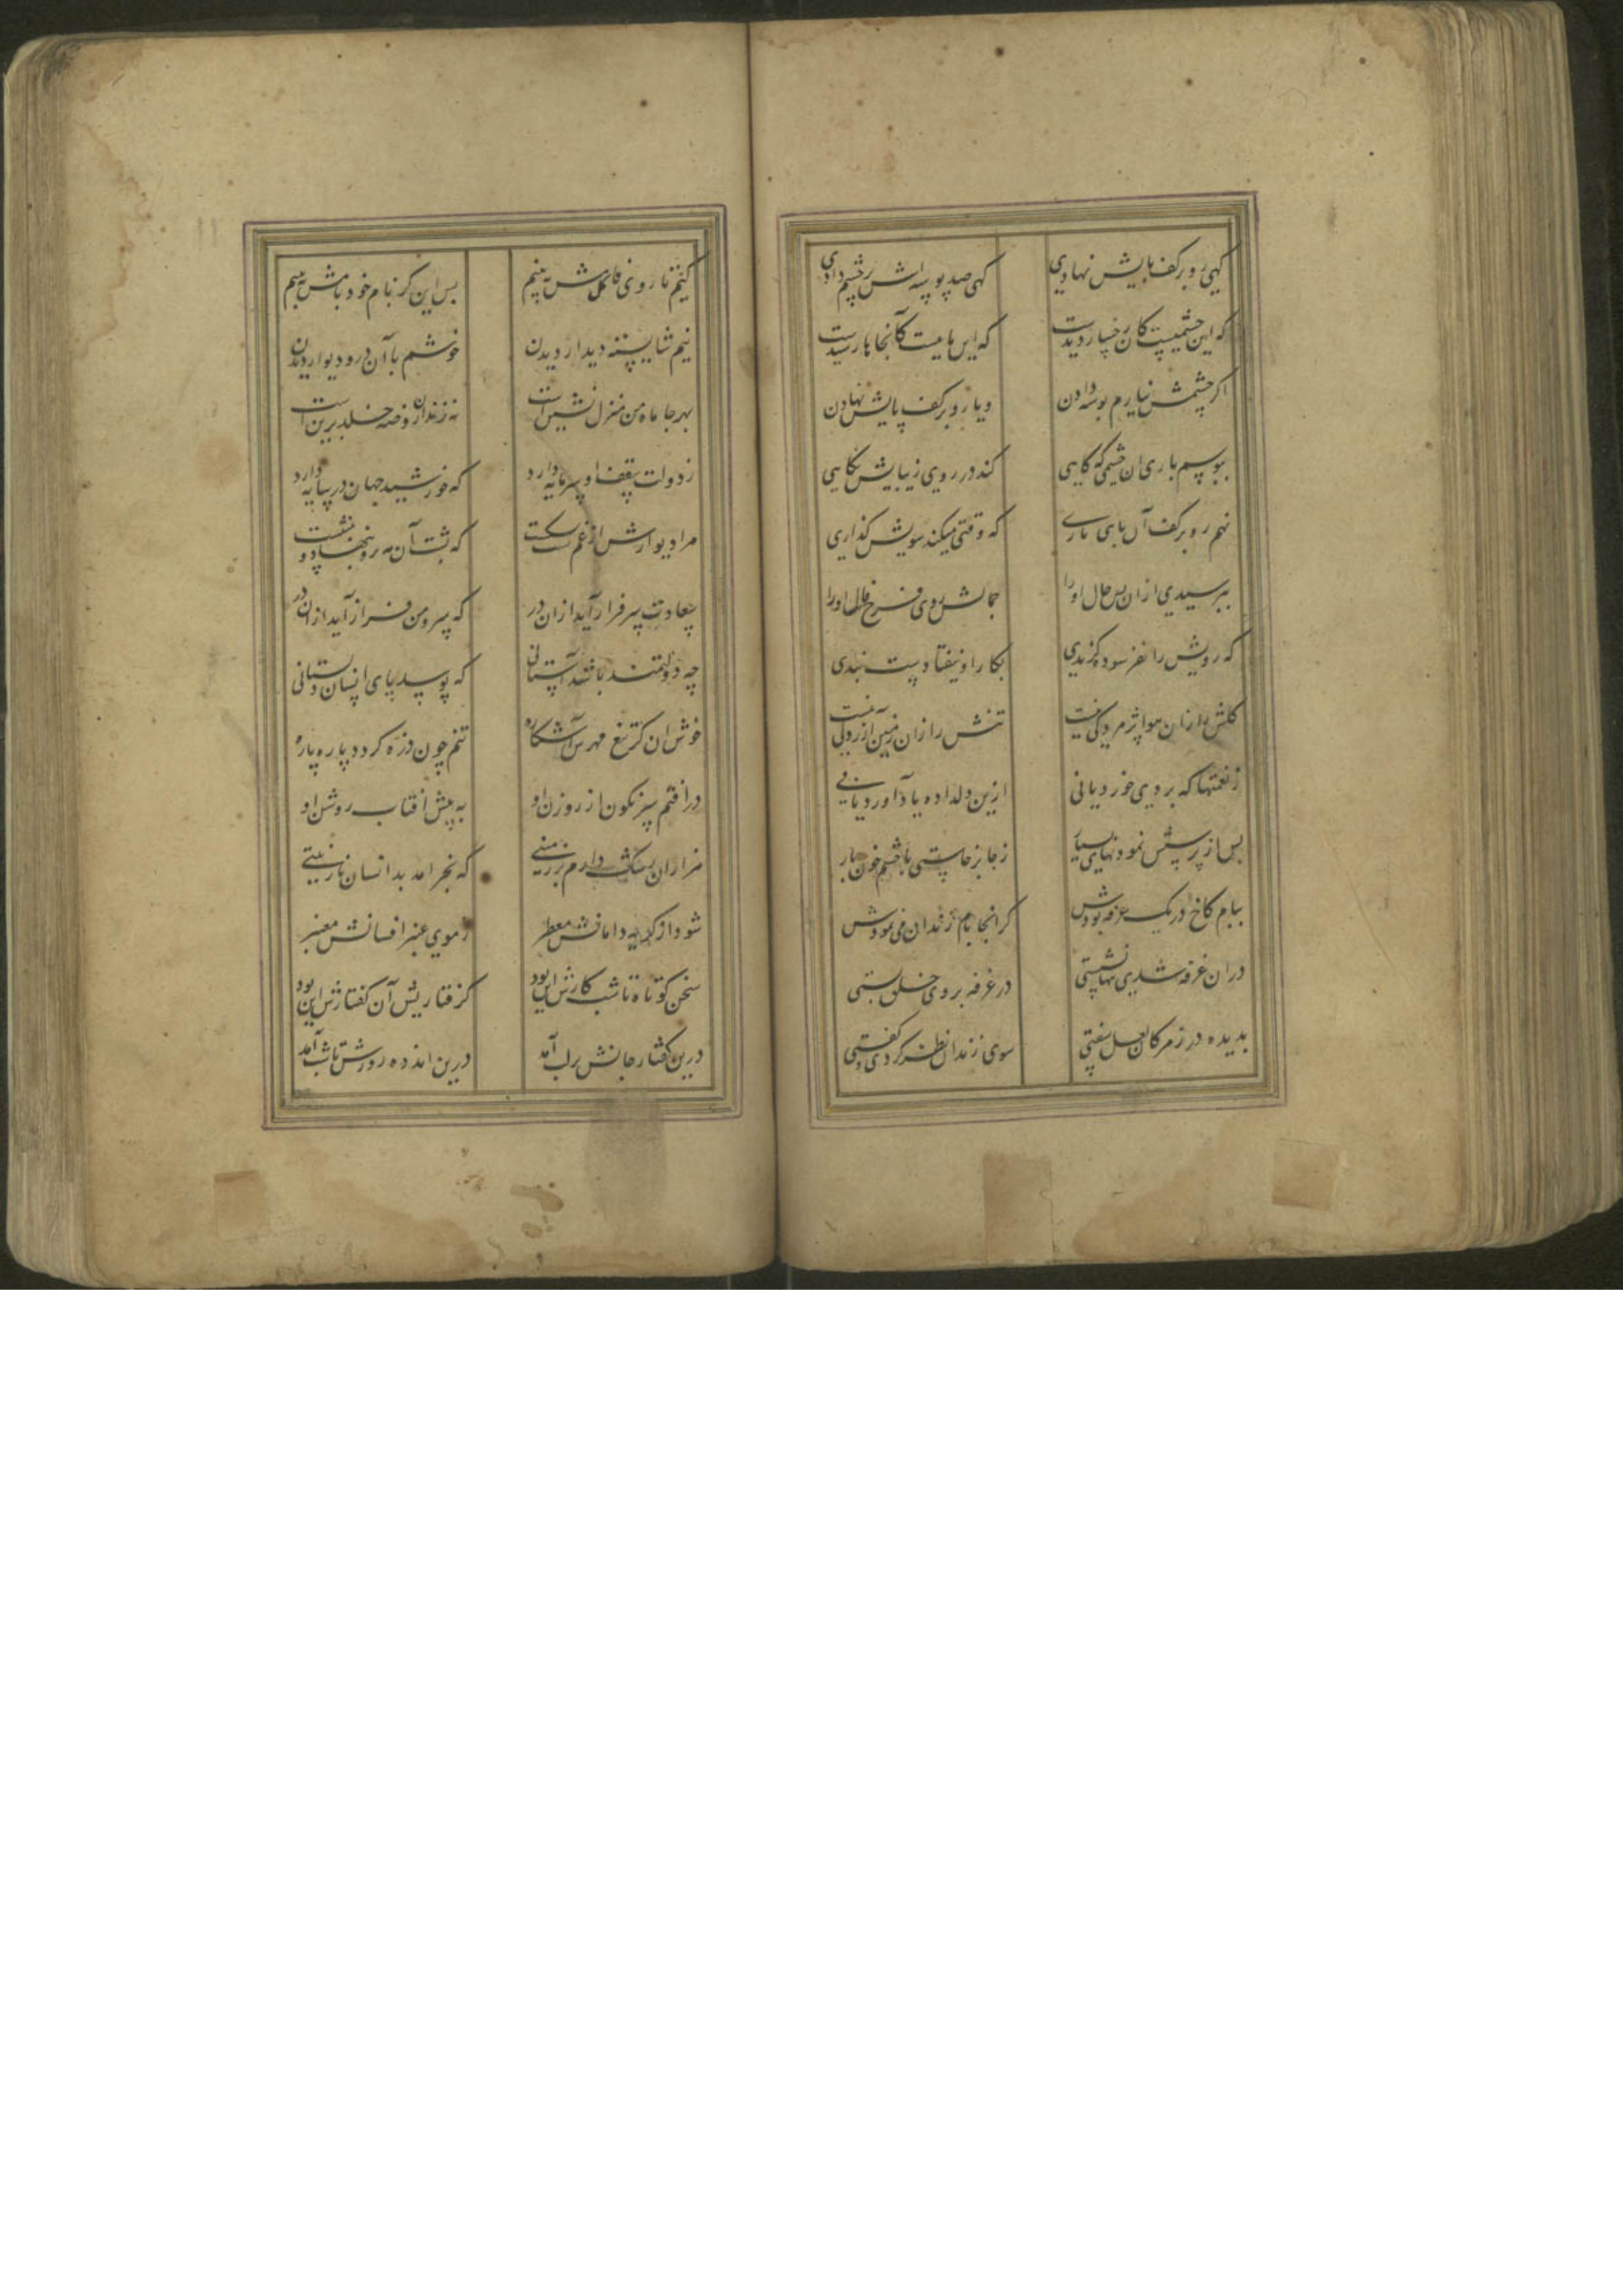 کهی رو بر کف پایش نهادی کهی صد بوسه اش بر چشم دادی
که این چشمیست کان رخسار دیدست که این پاییست کانجاها رسیدست
اکر چشمش نیارم بوسه دادن و یا رو بر کف پایش نهادن
ببوسم باری ان چشمی که کاهی کند در روی زیبایش نکاهی
نهم رو بر کف آن پای باری که وقتی میکند سویش کذاری
بپرسیدی ازان پس حال او را جمالش روی فرخ فال او را
که رویش را نفرسوده کزندی بکار او نیفتادست بندی
کلش را زان هوا پژمردکی نیست تنش را زان زمین آزردکی نیست
ز نعمتها که بردی خورد یا نی ازین دلداده یاد آورد یا نی
پس از پرسش نمودنهای بسیار ز جا برخاستی با چشم خون بار
ببام کاخ در یک غرفه بودش کز انجا بام زندان می نمودش
دران غرفه شدی تنها نشستی در غرفه بروی خلق بستی
بدیده در ز مژکان لعل سفتی سوی زندان نظر کردی و کفتی
کیم تا روی کلفامش به بینم بس این کز بام خود بامش به بینم
نیم شایسته دیدار دیدن خوشم با آن در و دیوار دیدن
بهر جا ماه من منزل نشین است نه زندان روضه خلد برین است
ز دولت سقف او سرمایه دارد که خورشید جهان در سایه دارد
مرا دیوارش از غم پشت بشکست که پشت آن مه برو بنهاد و بنشست
سعادت سرفراز آید ازان در که سرو من فراز آید ازان در
چه دولتمند باشد آستانی که بوسد پای انسان دلستانی
خوش ان کز تیغ مهرش آشکاره تنم چون ذره کردد پاره پاره
در افتم سرنکون از روزن او به پیش افتاب روشن او
هزاران رشک دارم بر زمینی که بخرامد بدانسان نازنینی
شود از کرد دامانش معطر ز موی عنبر افشانش معنبر
سخن کوتاه تا شب کارش این بود کرفتاریش آن کفتارش این بود
درین کفتار جانش بر لب آمد درین اندوه روزش تا شب آمد